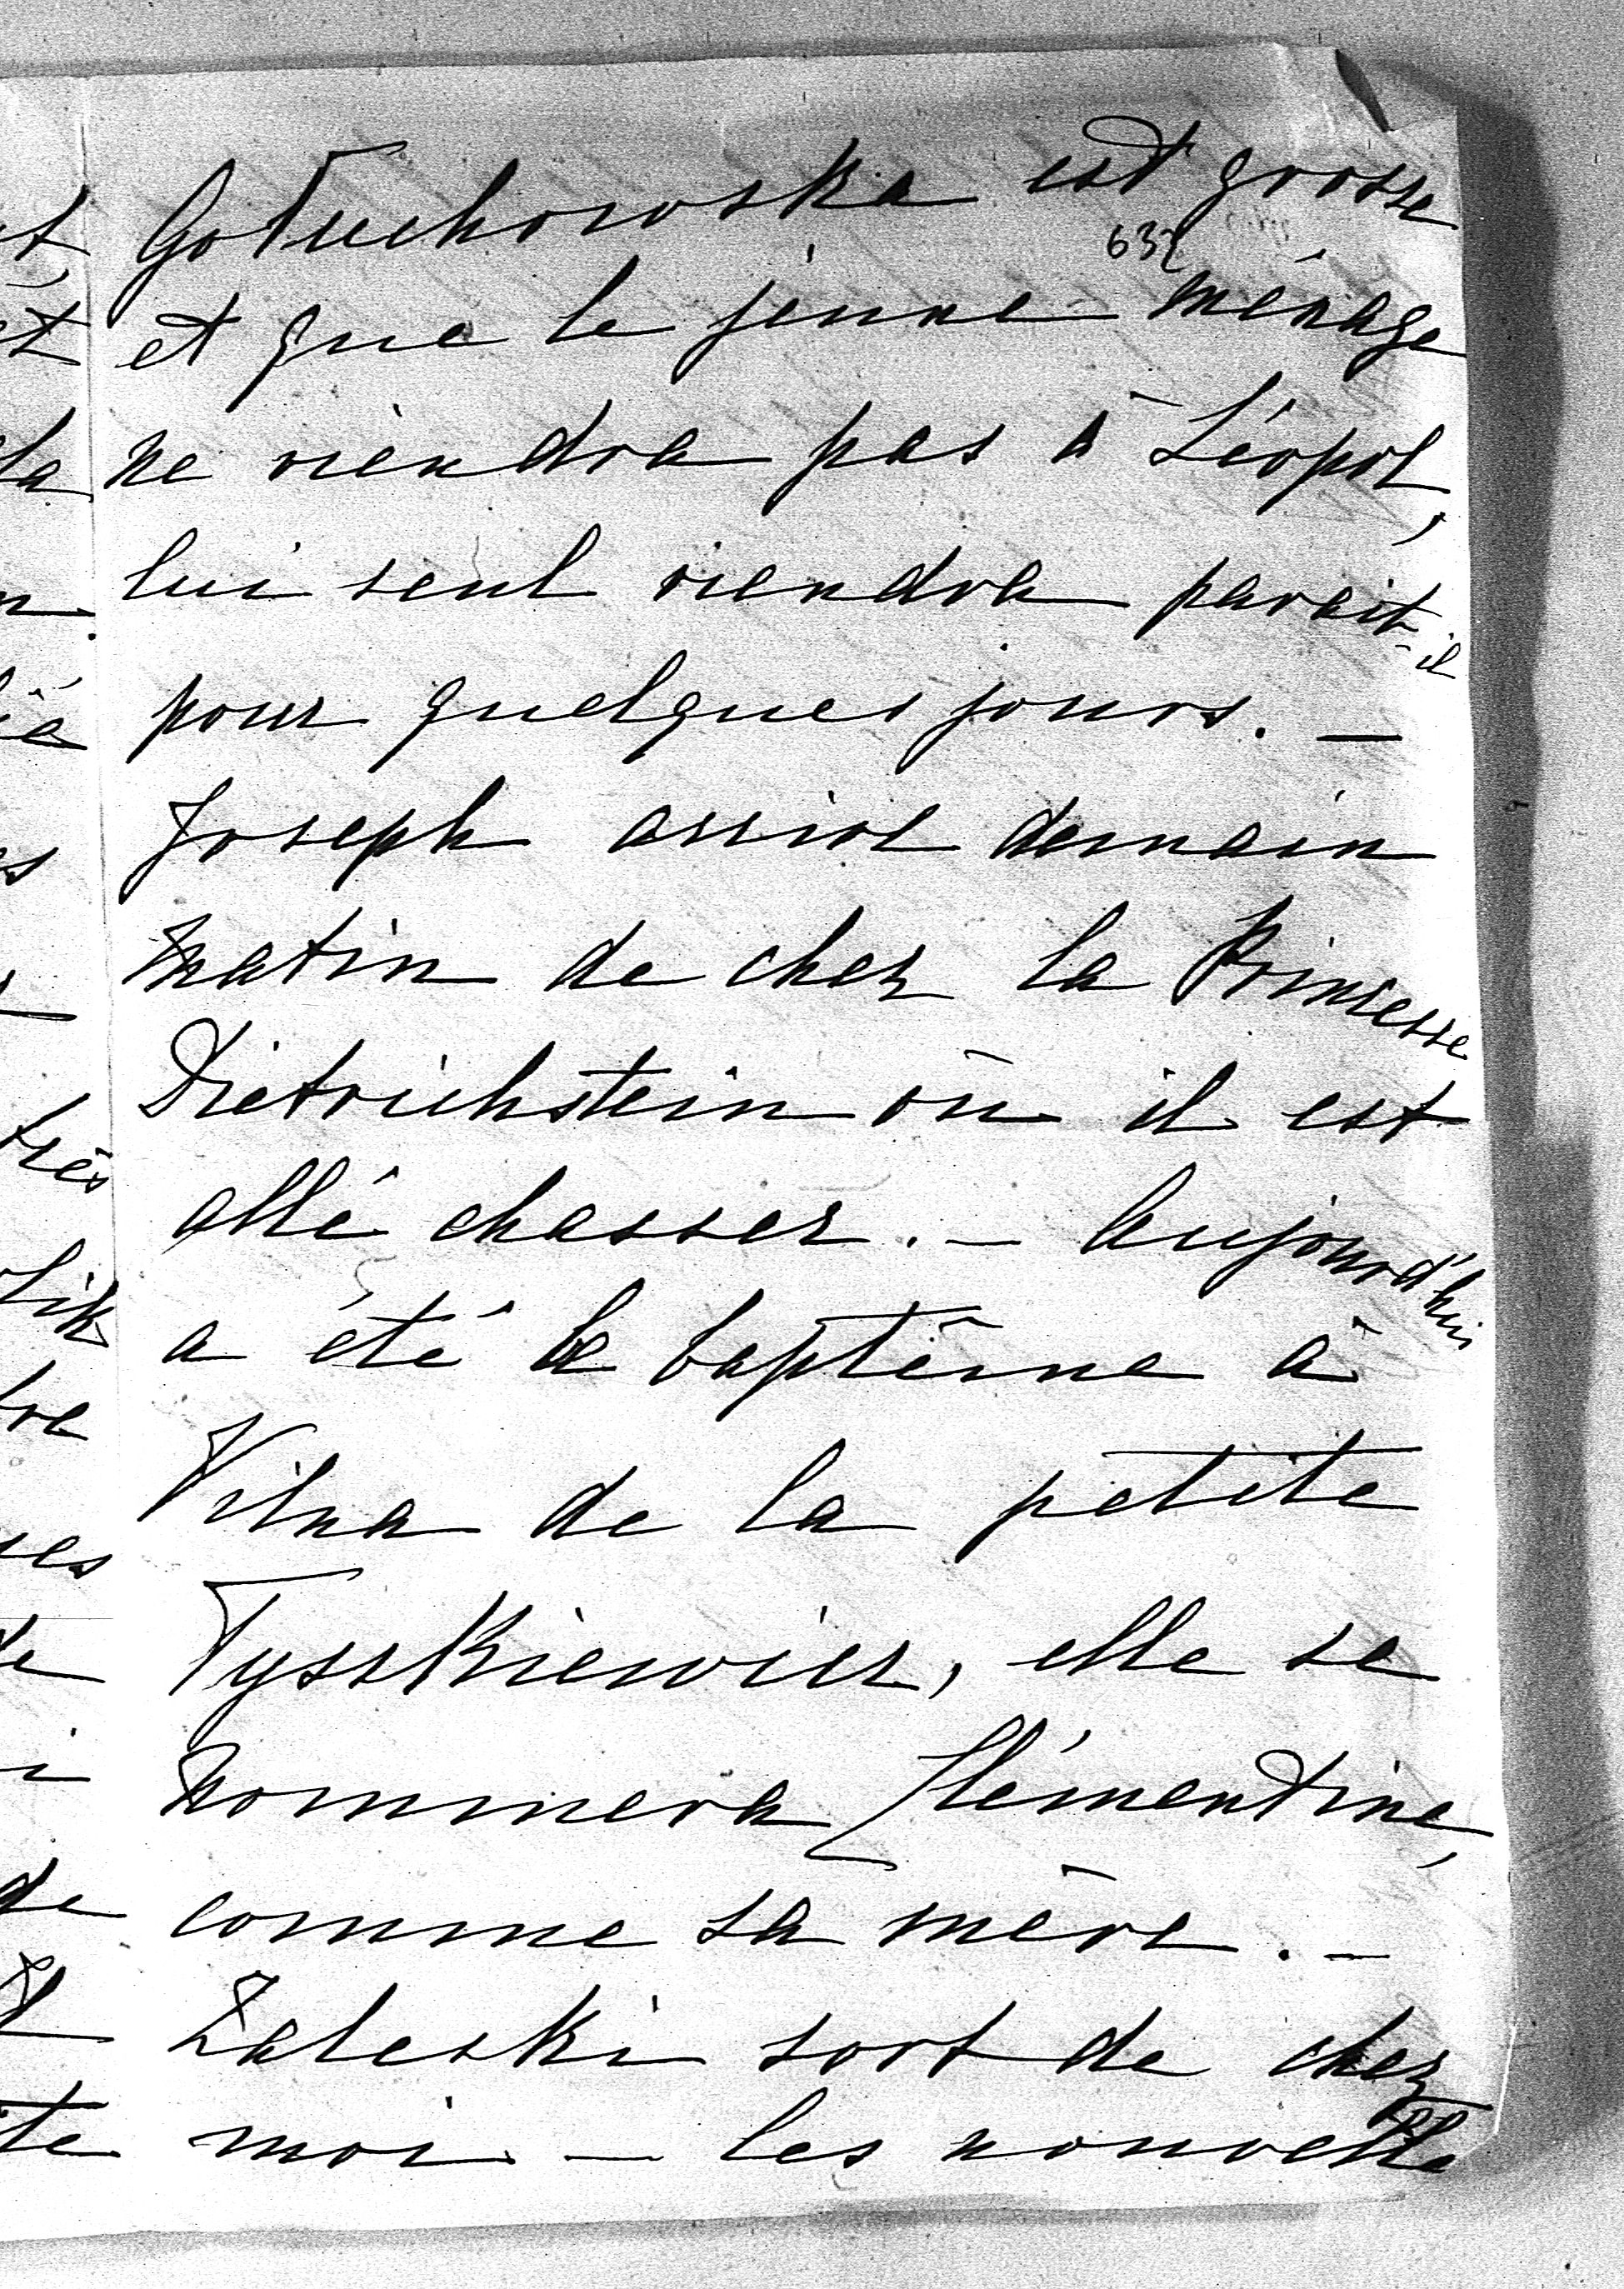 Gołuchowska est grosse
632
et que le jeune ménage
ne viendra pas à Léopol,
lui seul viendra parait-il
pour quelques jours. —
Joseph arrive demain
matin de chez la Princesse
Dietrichstein où il est
allé chasser. — Aujourd'hui
a été le baptême à
Vilna de la petite
Tysskiewicz, elle se
nommera Clémentine,
comme sa mère. —
Zaleski sort de chez
moi — les nouvelle